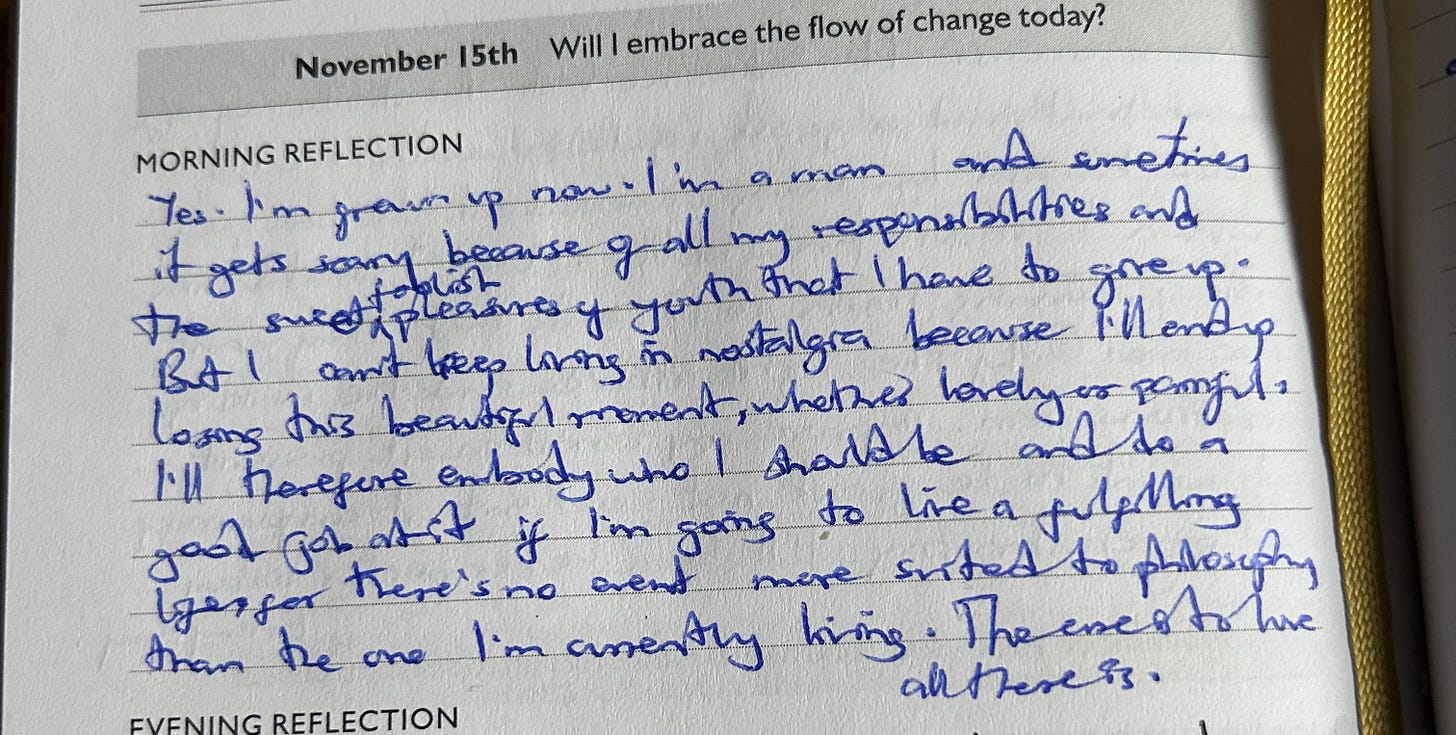 November 15th Will I embrace the flow of change today?
MORNING REFLECTION
Yes. I'm grown up now. I'm a man and sometimes
it gets scary because of all my responsibilities and
foolish
the sweet, pleasures of youth that I have to give up.
But I can't keep living in nostalgia because I'll end up
losing this beautiful moment, whether lovely or painful.
I'll therefore embody who I should be and do a
good job at it if I'm going to live a fulfilling
for there's no event more suited to philosophy
than the one I'm currently living. The
all there is.
EVENING REFLECTION